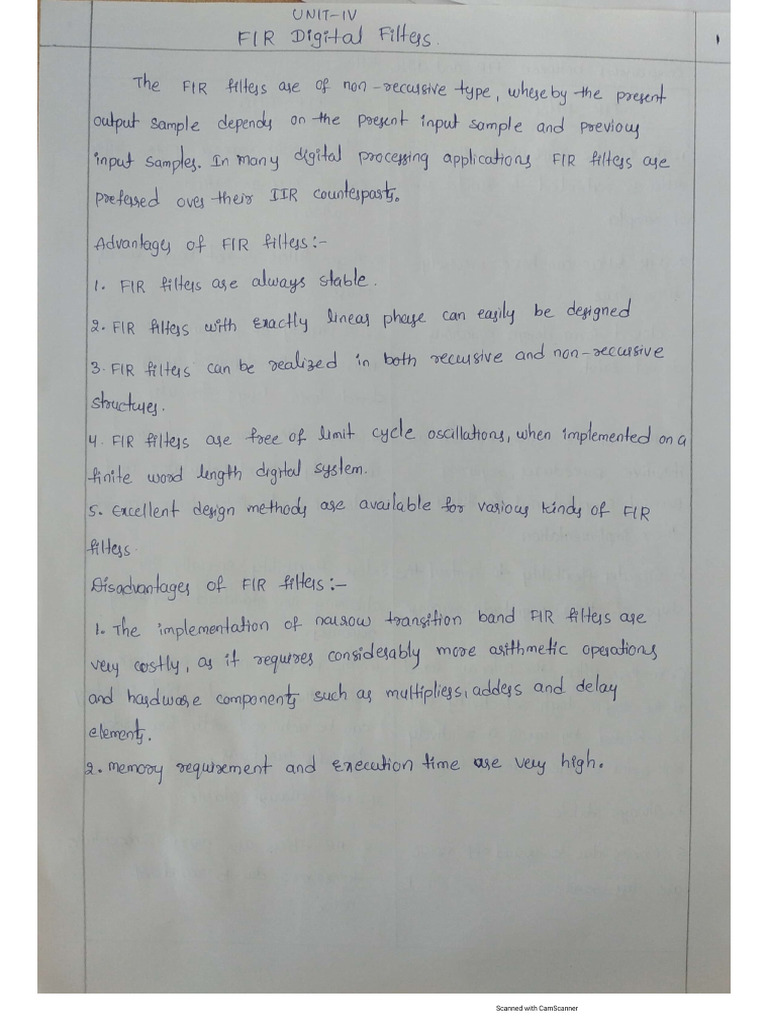 UNIT-IV
FIR Digital Filters.
1
The FIR filters are of non-recursive type, whereby the present
output sample depends on the present input sample and previous
input samples. In many digital processing applications FIR filters are
preferred over their IIR counterparts.
Advantages of FIR filters:-
1. FIR filters are always stable.
2. FIR filters with exactly linear phase can easily be designed
3. FIR filters can be realized in both recursive and non-recursive
structures.
4. FIR filters are free of limit cycle oscillations, when implemented on a
finite word length digital system.
5. Excellent design methods are available for various kinds of FIR
filters.
Disadvantages of FIR filters:-
1. The implementation of narrow transition band FIR filters are
very costly, as it requires considerably more arithmetic operations
and hardware components such as multipliers, adders and delay
elements.
2. Memory requirement and execution time are very high.
Scanned with CamScanner